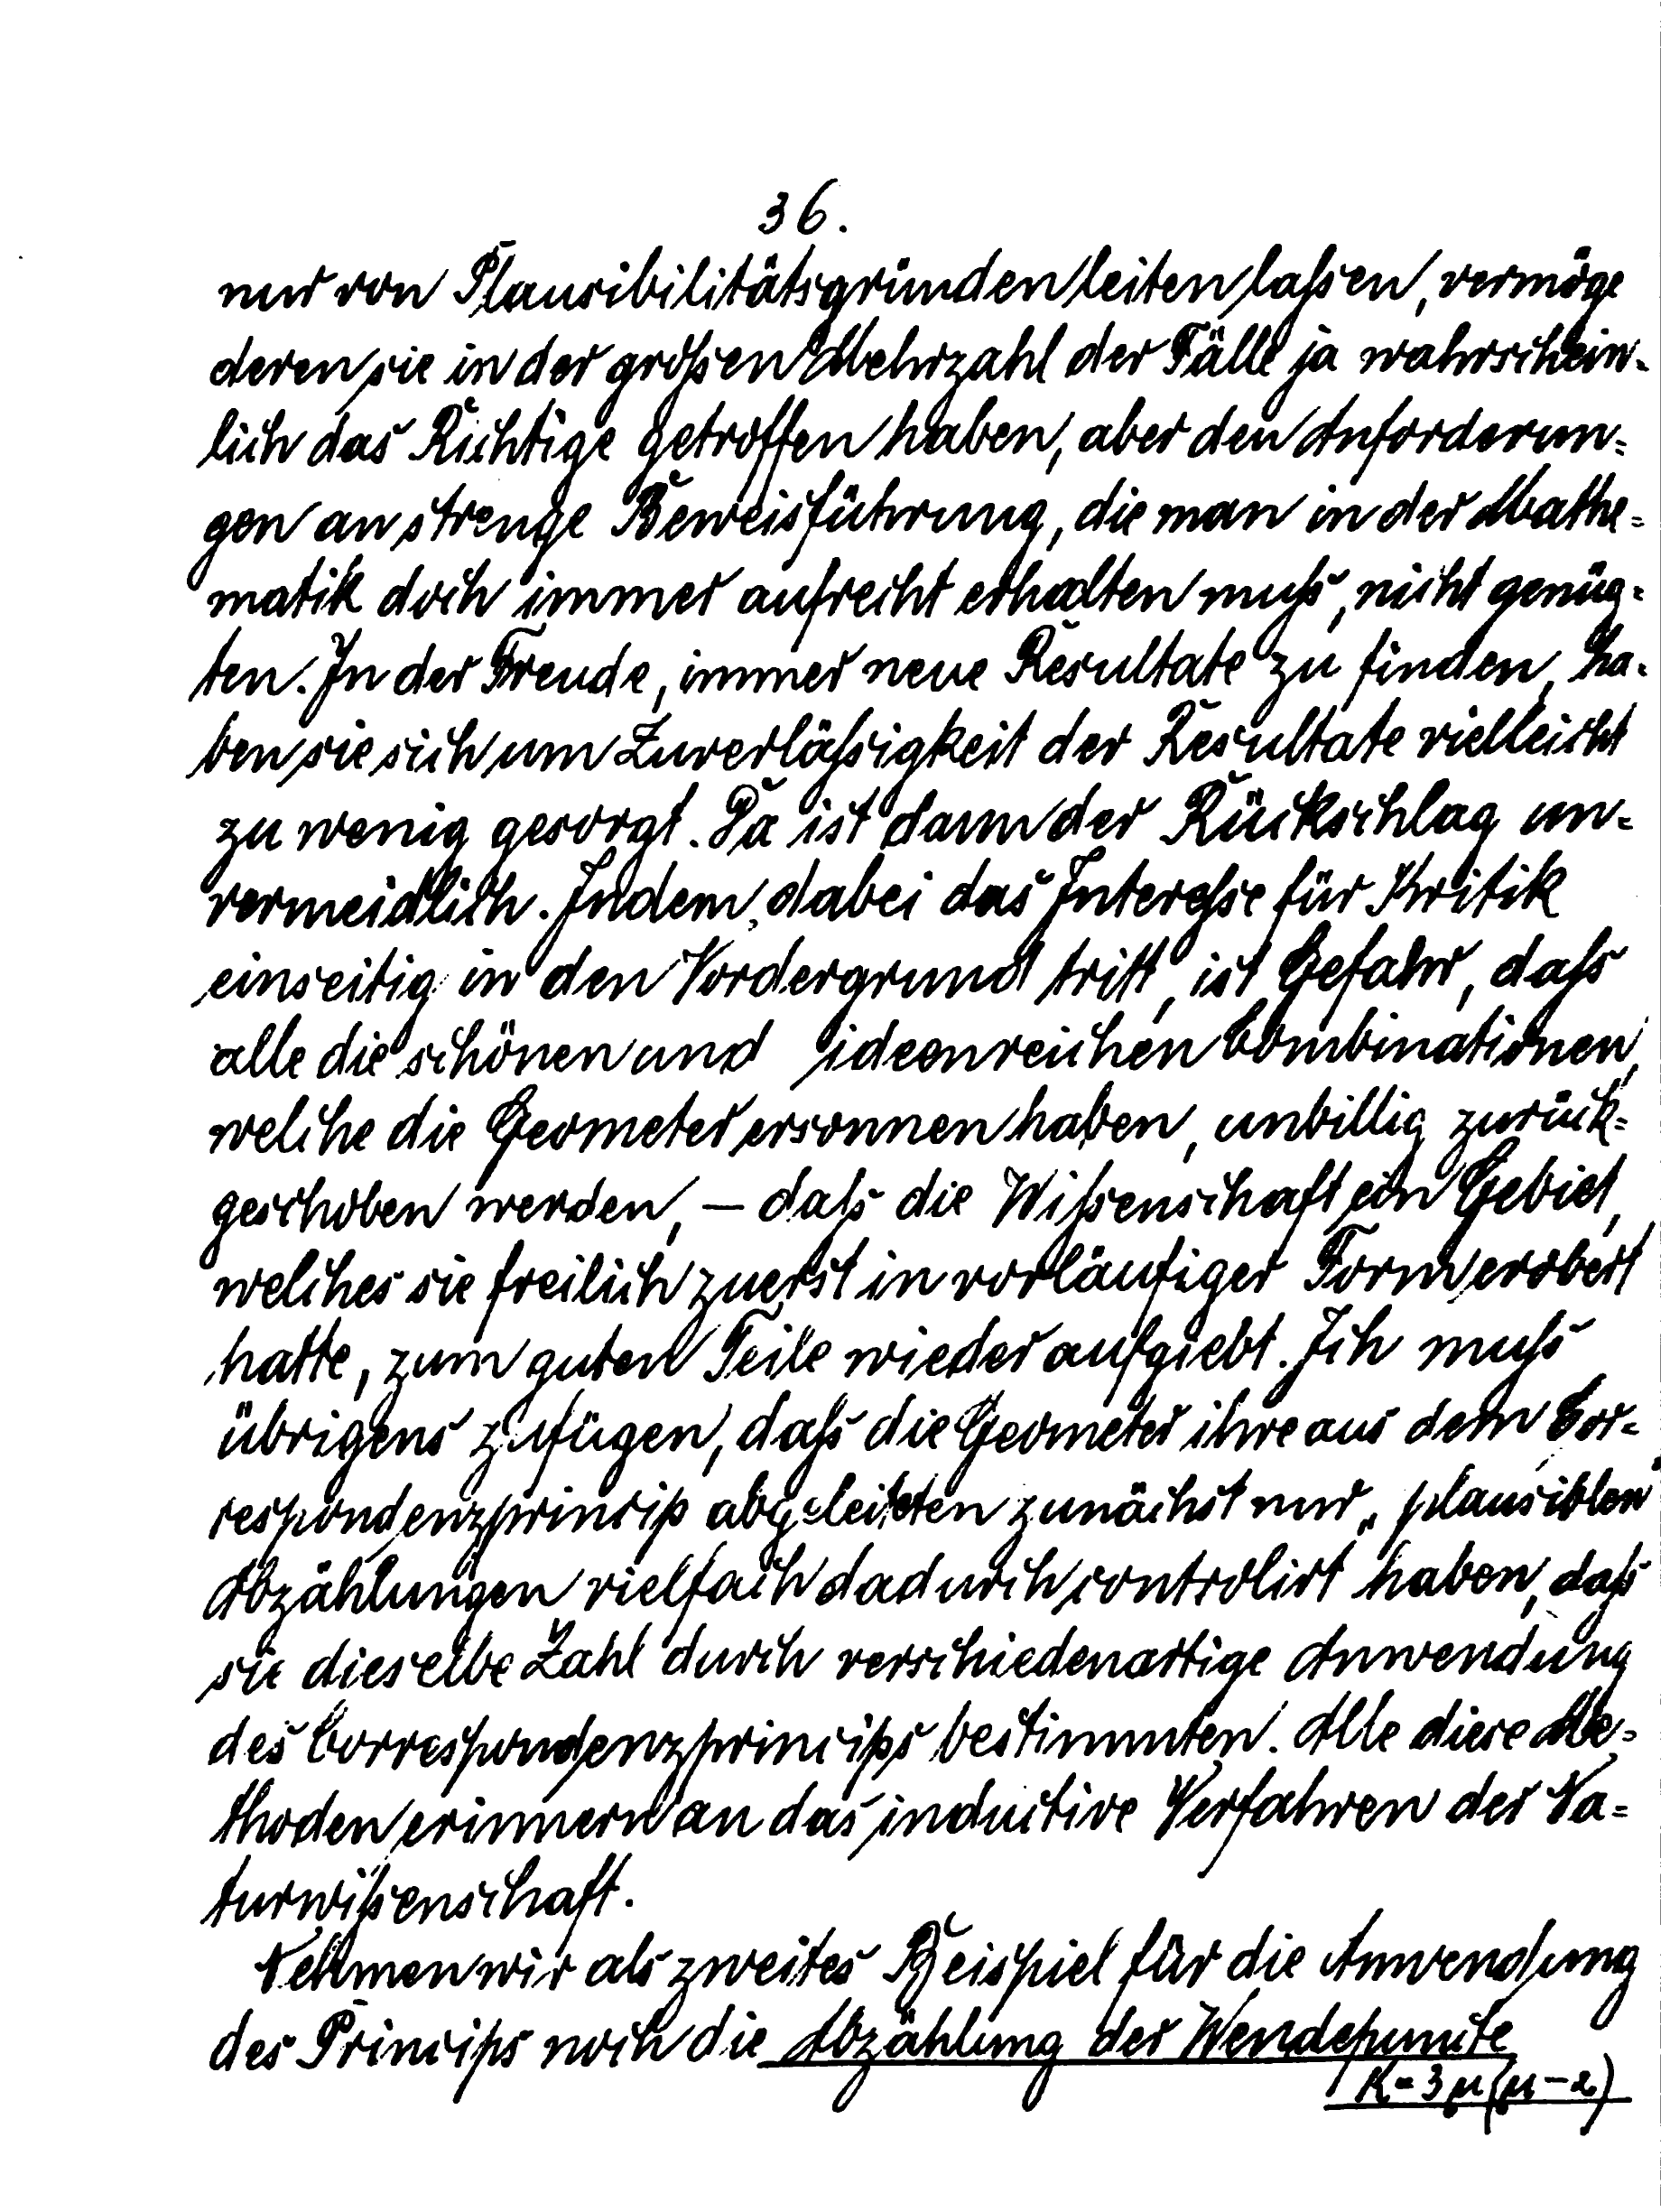 36.
nur von Plausibilitätsgründen leiten laßen, vermöge
deren sie in der großen Mehrzahl der Fälle ja wahrschein-
lich das Richtige getroffen haben, aber den Anforderun-
gen an strenge Beweisführung, die man in der Mathe-
matik doch immer aufrecht erhalten muß, nicht genüg-
ten. In der Freude, immer neue Resultate zu finden, ha-
ben sie sich um Zuverläßigkeit der Resultate vielleicht
zu wenig gesorgt. Da ist dann der Rückschlag un-
vermeidlich. Indem dabei das Intereße für Kritik
einseitig in den Vordergrund tritt, ist Gefahr, daß
alle die schönen und ideenreichen Combinationen,
welche die Geometer ersonnen haben, unbillig zurück-
geschoben werden, – daß die Wißenschaft ein Gebiet,
welches sie freilich zuerst in vorläufiger Form erobert
hatte, zum guten Teile wieder aufgiebt. Ich muß
übrigens zufügen, daß die Geometer ihre aus dem Cor-
respondenzprincip abgeleiteten zunächst nur „plausiblen"
Abzählungen vielfach dadurch controlirt haben, daß
sie dieselbe Zahl durch verschiedenartige Anwendung
des Correspondenzprincips bestimmten. Alle diese Me-
thoden erinnern an das inductive Verfahren der Na-
turwißenschaft.
Nehmen wir als zweites Beispiel für die Anwendung
des Princips noch die Abzählung der Wendepuncte
K = 3μ(μ-2)